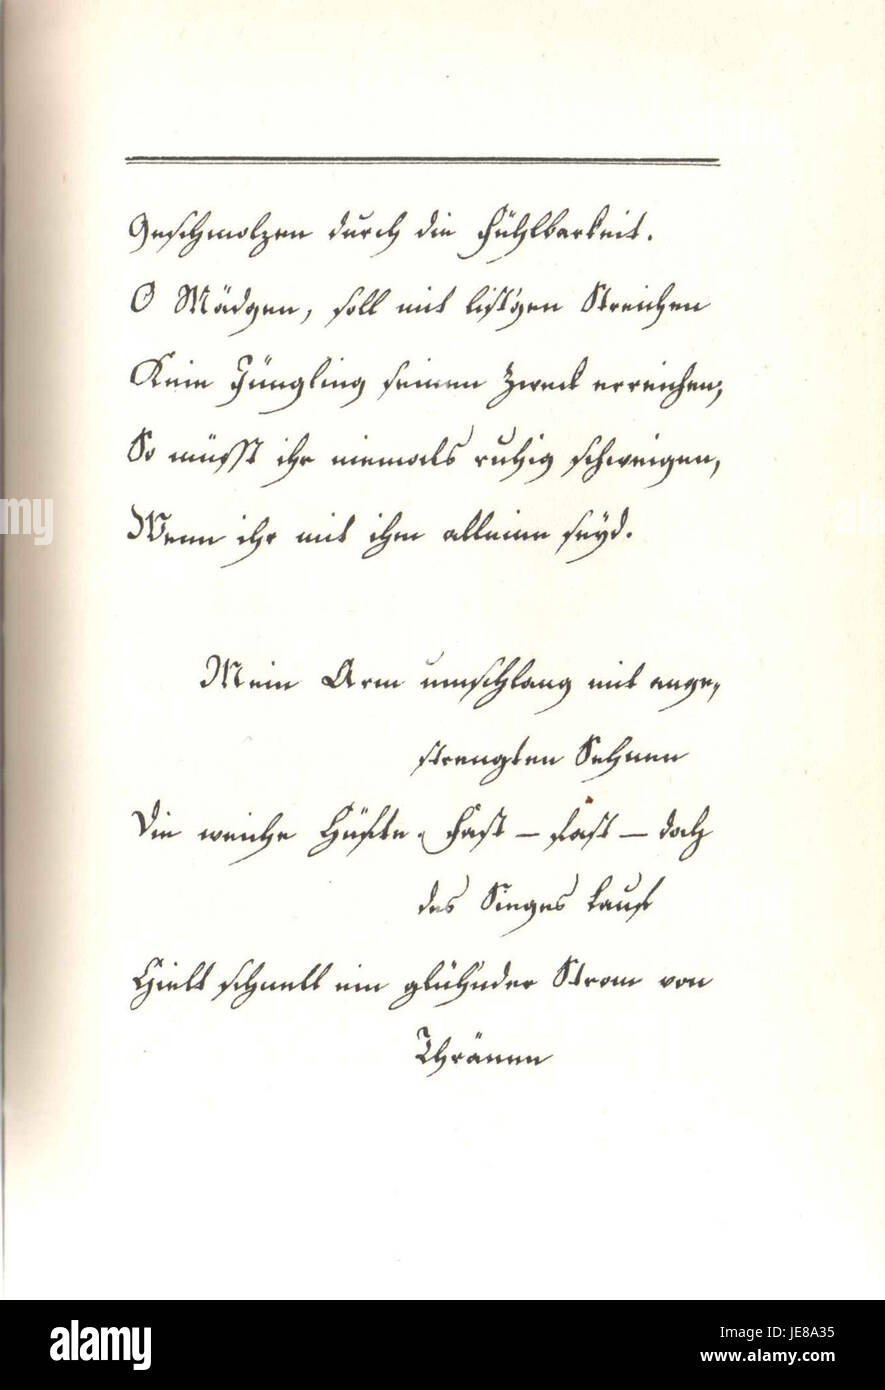 Geschmolzen durch die Fühlbarkeit.
O Mädgen, soll mit list'gen Streichen
Kein Jüngling seinen Zweck erreichen;
So müsst ihr niemals ruhig schweigen,
Wenn ihr mit ihm alleine seyd.
Mein Arm umschlang mit ange-
strengten Sehnen
Die weiche Hüfte. Fast – fast – doch
des Sieges Lauf
Hielt schnell ein glühnder Strom von
Thränen
my
alamy
Image ID: JE8A35
www.alamy.com